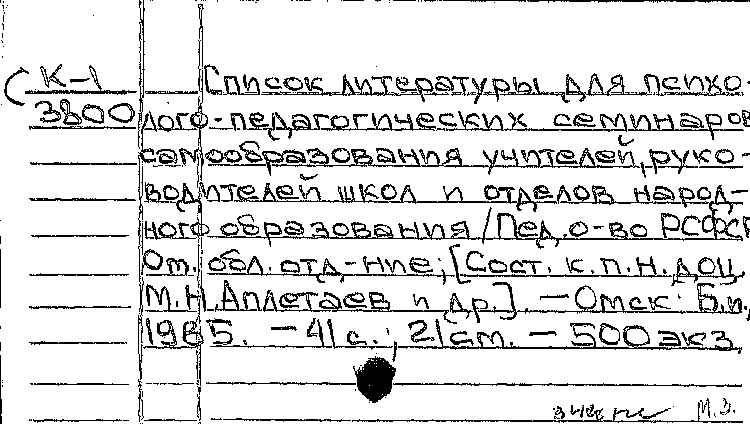 К-1 Список литературы для психо-
3800 лого-педагогических семинаров
самообразования учителей, руко-
водителей школ и отделов народ-
ного образования / Пед. о-во РСФСР
Ом. обл. отд-ние; [Сост. к.п.н. доц.
М.Н. Аплетаев и др.]. — Омск: Б.и.,
1985. — 41 с.; 21 см. — 500 экз.
М.З.